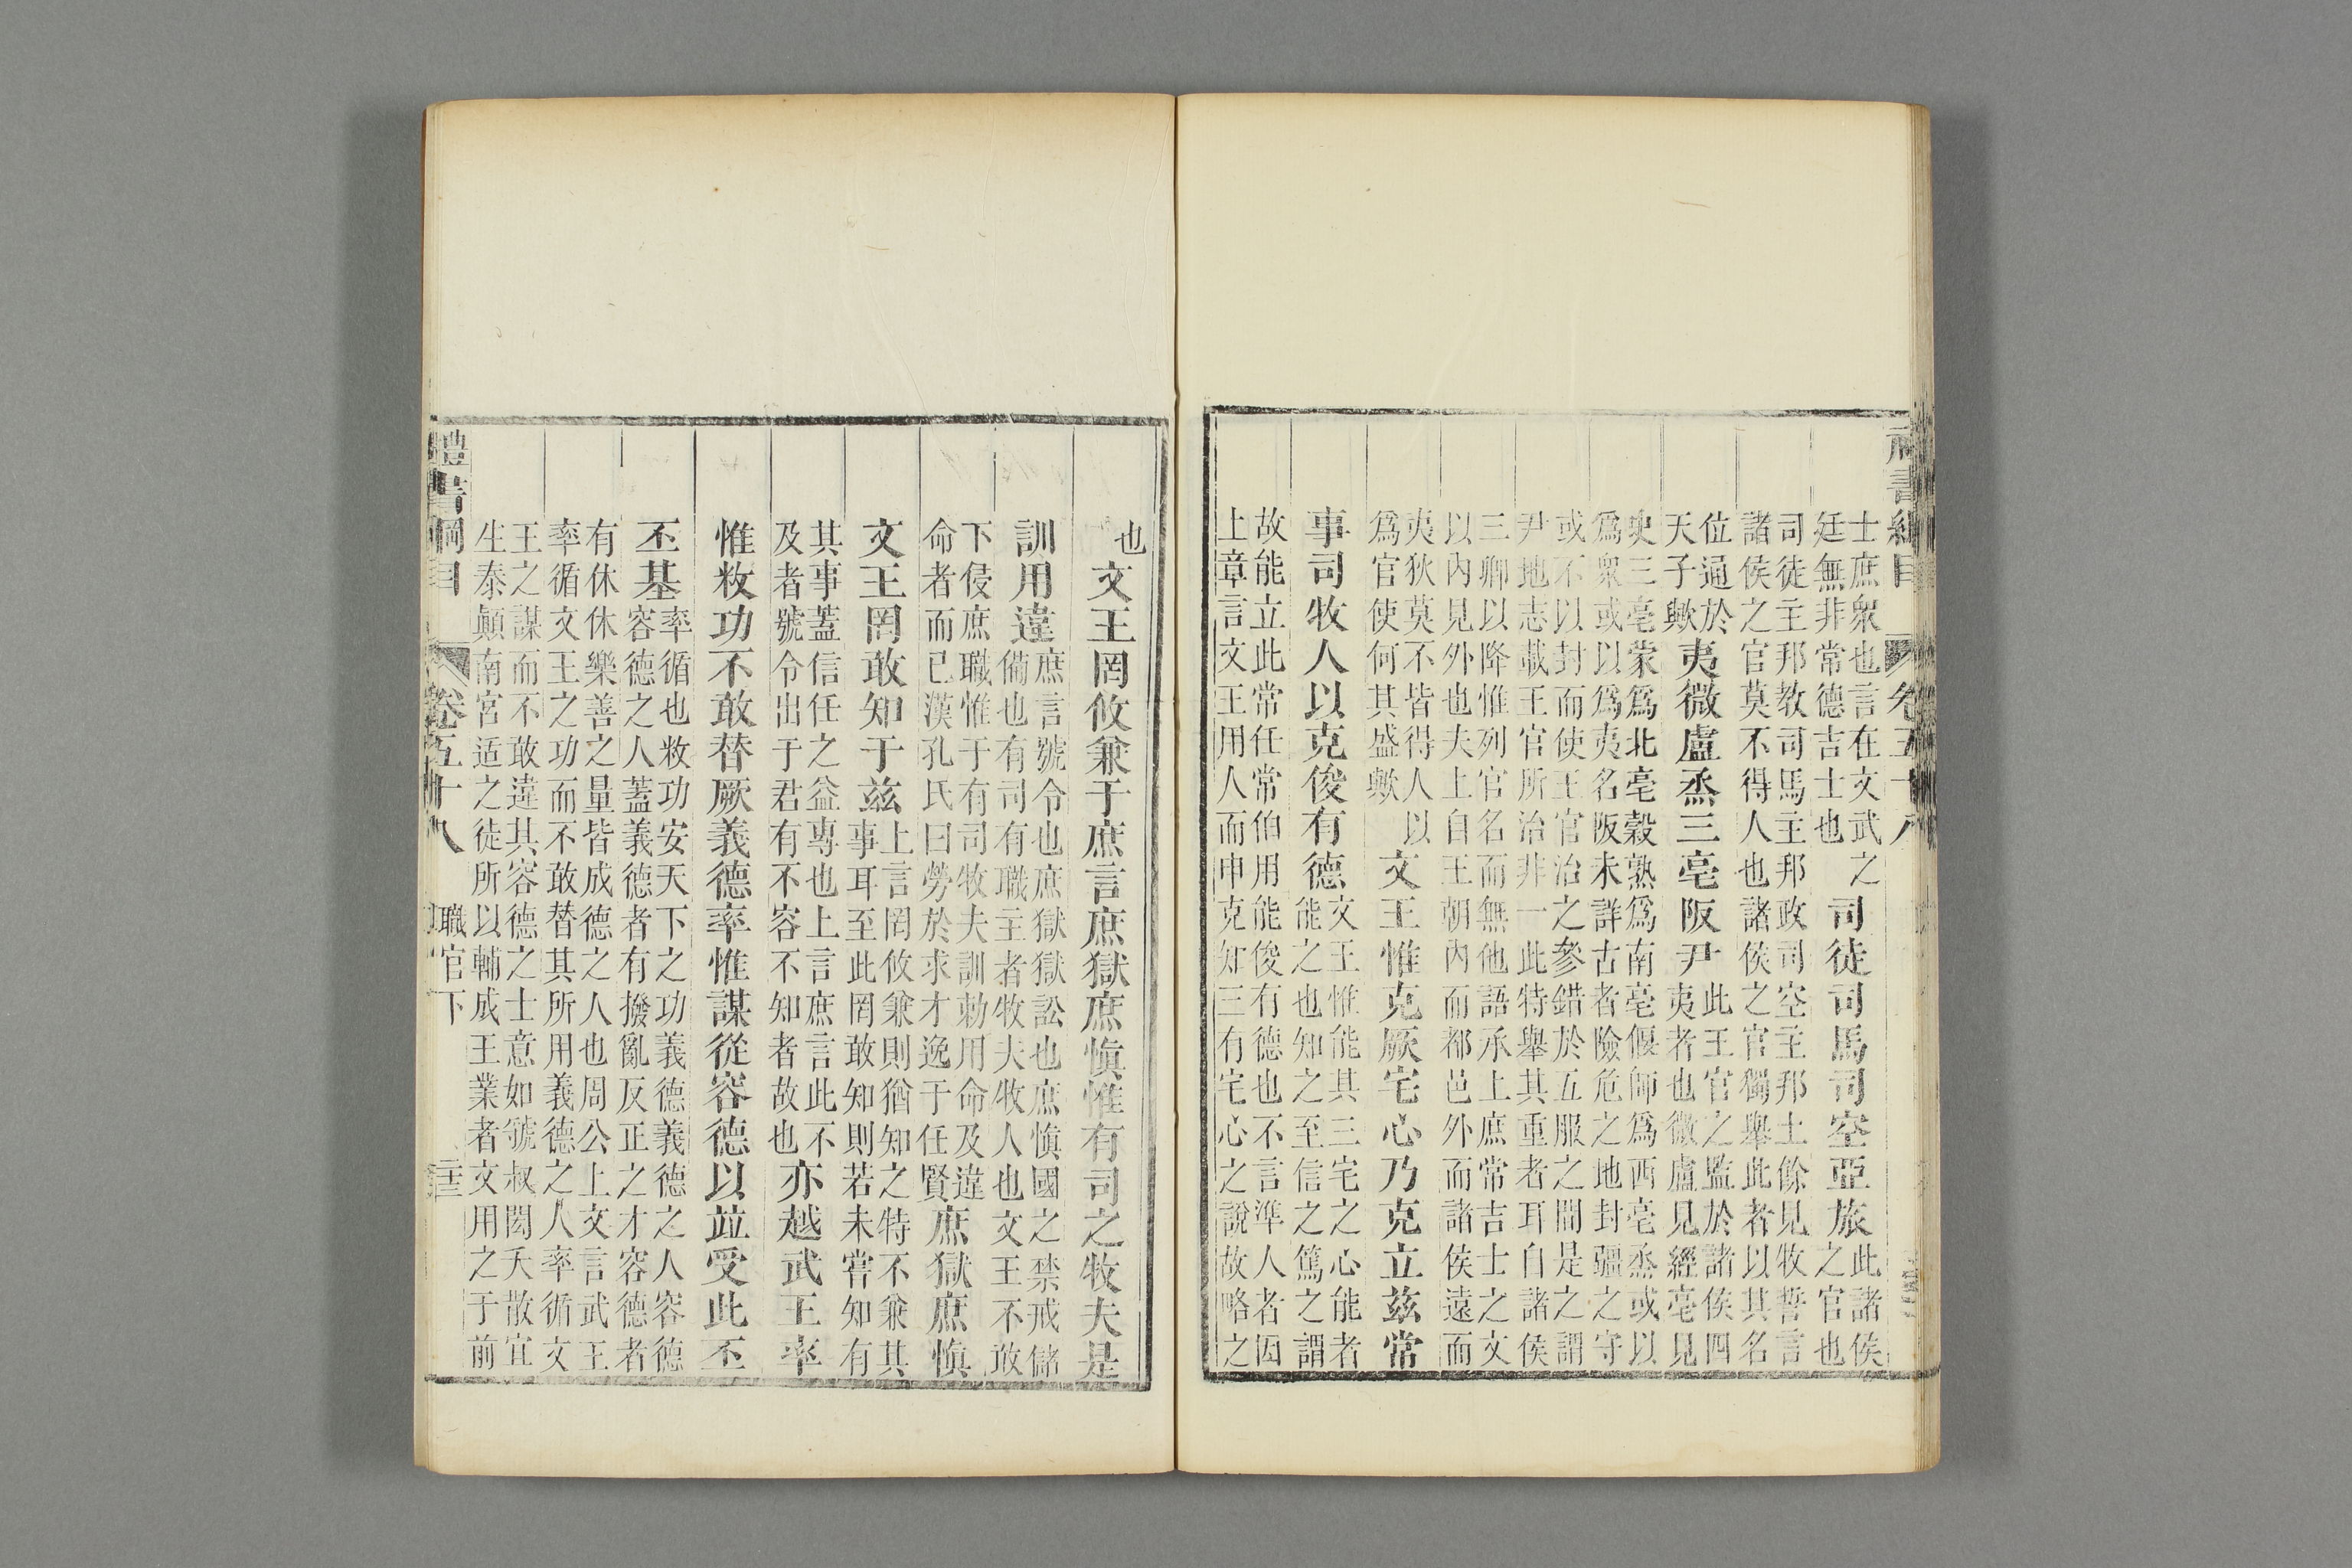 禮書綱目 卷五十八
士庶衆也言在文武之
廷無非常德吉士也
司徒司馬司空亞旅
此諸侯
之官也
司徒主邦教司馬主邦政司空主邦土餘見牧誓言
諸侯之官莫不得人也諸侯之官獨舉此者以其名
位通於
天子歟
夷微盧烝三亳阪尹
此王官之監於諸侯四
夷者也微盧見經亳見
史三亳蒙爲北亳穀熟爲南亳偃師爲西亳烝或以
爲衆或以爲夷名阪未詳古者險危之地封疆之守
或不以封而使王官治之參錯於五服之間是之謂
尹地志載王官所治非一此特舉其重者耳自諸侯
三卿以降惟列官名而無他語承上庶常吉士之文
以內見外也夫上自王朝內而都邑外而諸侯遠而
夷狄莫不皆得人以
爲官使何其盛歟
文王惟克厥宅心乃克立茲常
事司牧人以克俊有德
文王惟能其三宅之心能者
能之也知之至信之篤之謂
故能立此常任常伯用能俊有德也不言準人者因
上章言文王用人而申克知三有宅心之說故略之
也
文王罔攸兼于庶言庶獄庶慎惟有司之牧夫是
訓用違
庶言號令也庶獄獄訟也庶慎國之禁戒儲
備也有司有職主者牧夫牧人也文王不敢
下侵庶職惟于有司牧夫訓勅用命及違
命者而已漢孔氏曰勞於求才逸于任賢
庶獄庶慎
文王罔敢知于茲
上言罔攸兼則猶知之特不兼其
事耳至此罔敢知則若未嘗知有
其事蓋信任之益專也上言庶言此不
及者號令出于君有不容不知者故也
亦越武王率
惟敉功不敢替厥義德率惟謀從容德以竝受此丕
丕基
率循也敉功安天下之功義德義德之人容德
容德之人蓋義德者有撥亂反正之才容德者
有休休樂善之量皆成德之人也周公上文言武王
率循文王之功而不敢替其所用義德之人率循文
王之謀而不敢違其容德之士意如虢叔閎夭散宜
生泰顛南宮适之徒所以輔成王業者文用之于前
禮書綱目 卷五十八 職官下